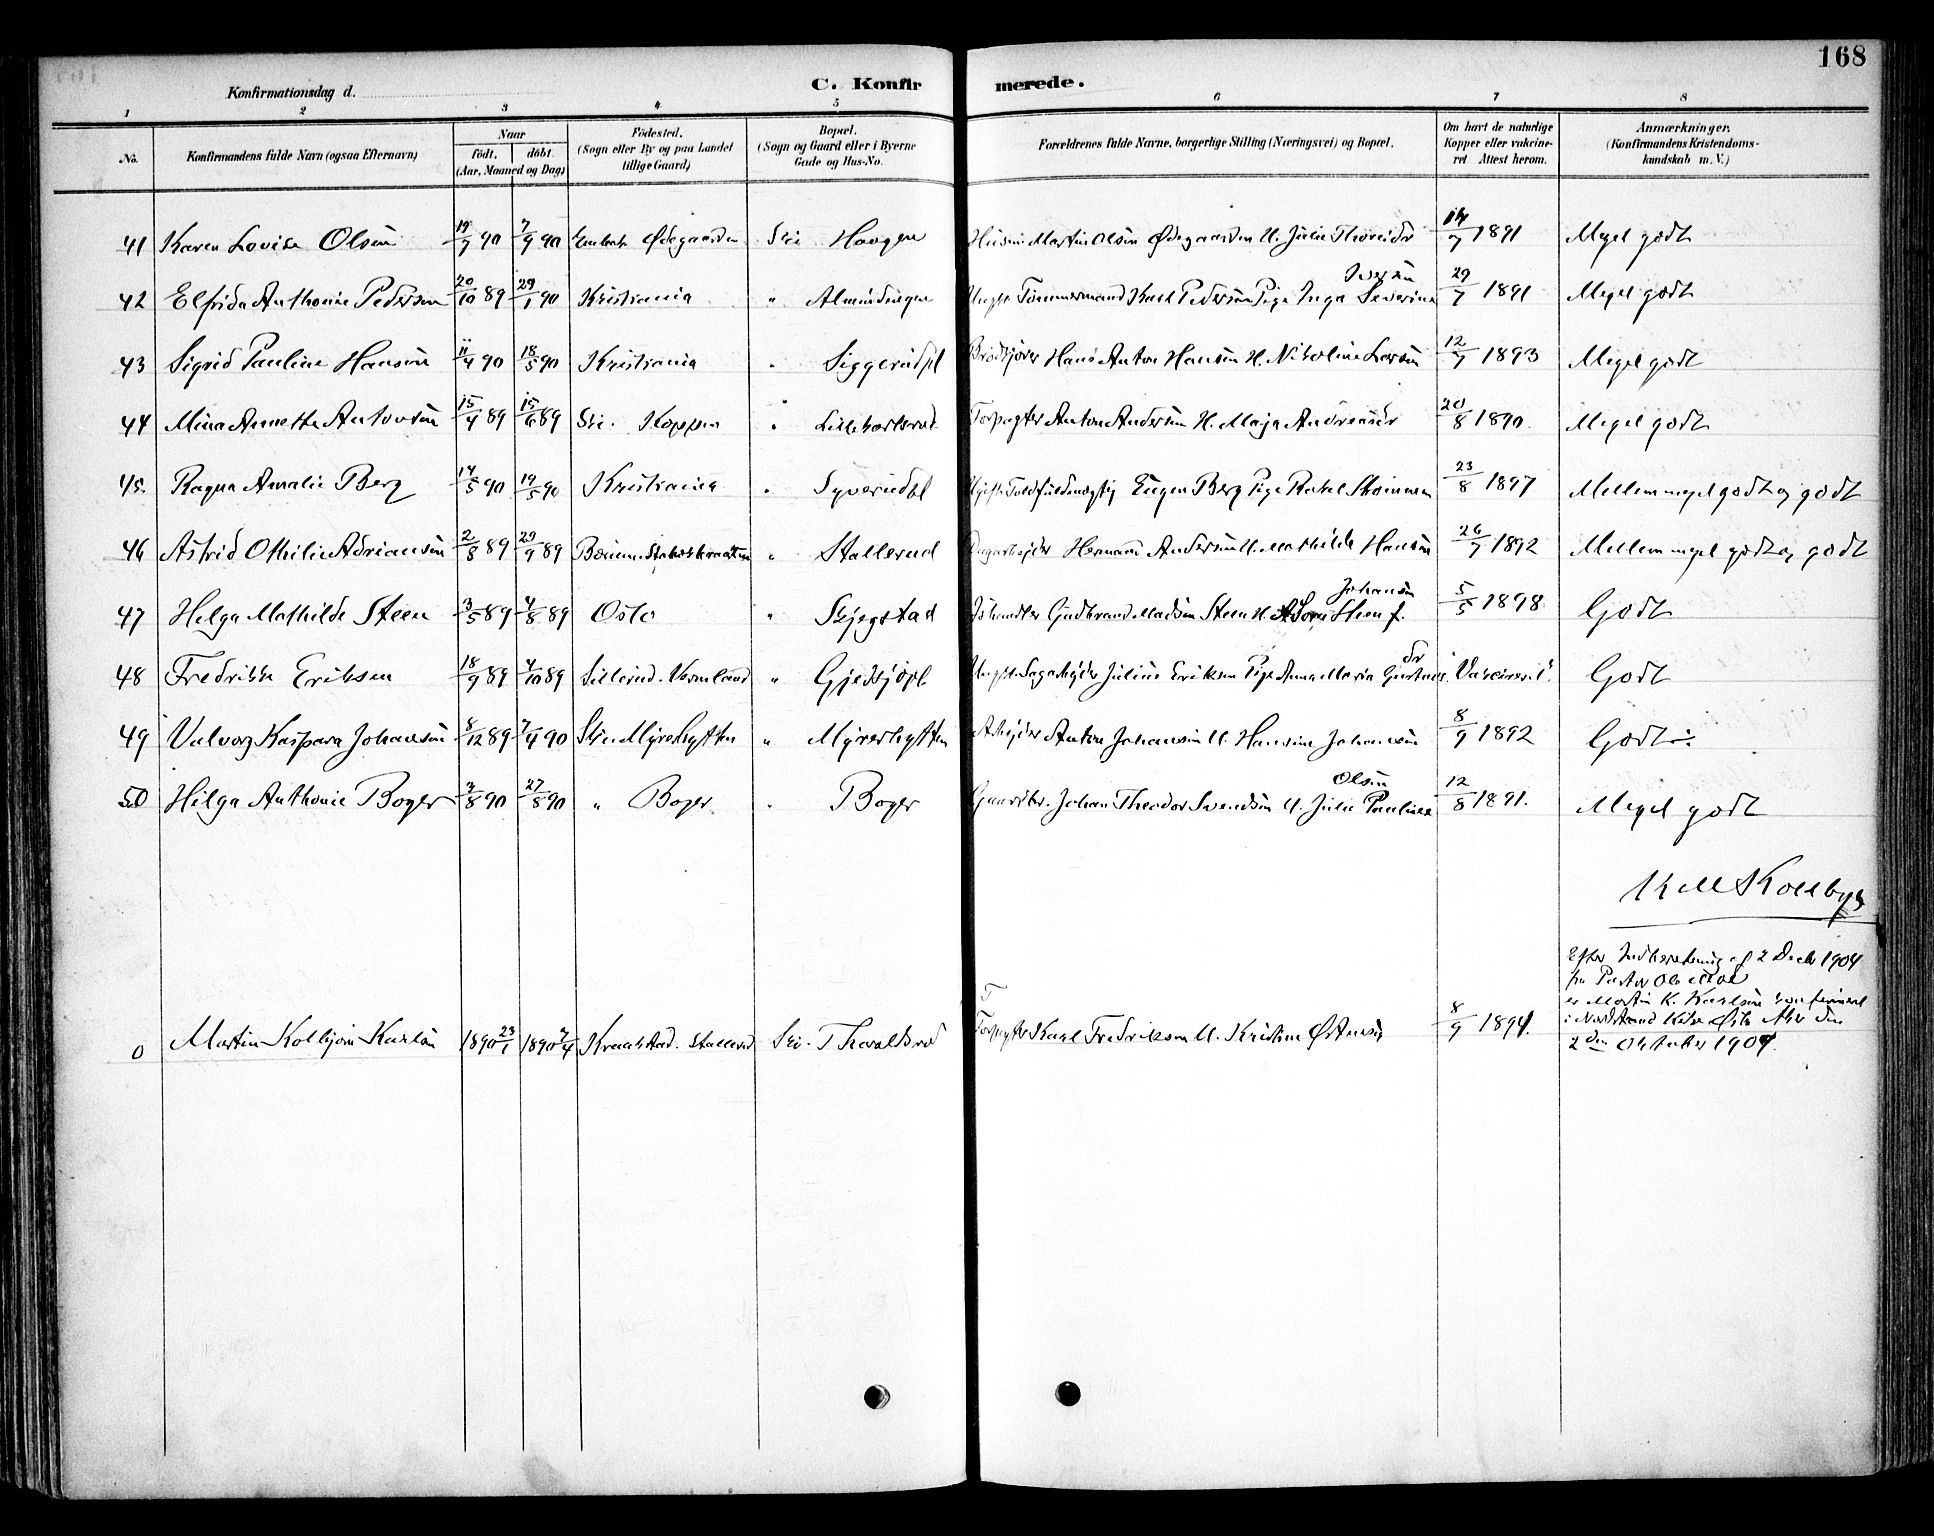 168
Konfirmationsdag d.
C. Konfirmerede.
1 2 3 4 5 6 7 8
No. Konfirmandens fulde Navn (ogsaa Efternavn) Naar født, døbt (Aar, Maaned og Dag) Födested. (Sogn eller By og paa Landet tillige Gaard) Bopæl. (Sogn og Gaard eller i Byerne Gade og Hus-No. Forældrenes fulde Navne, borgerlige Stilling (Næringsvei) og Bopæl. Om havt de naturlige Kopper eller vakcineret Attest herom. Anmærkninger. (Konfirmandens Kristendomskundskab m. V.)
41 Karen Lovise Olsen 19/7 90 7/9 90 Ødegaarden Ski Haugen Martin Olsen Ødegaarden H. Julie 14/7 1891 Meget godt
Iversen
42 Elfrida Anthonie Pedersen 20/10 89 29/1 90 Kristiania " Almindingen Ungk. Tømmermand Karl Pedersen Pige Inga Severine 29/7 1891 Meget godt
43 Sigrid Pauline Hansen 11/4 90 18/5 90 Kristiania " Siggerudpl Hans Anton Hansen H. Nikoline Larsen 12/7 1893 Meget godt
44 Mina Annette Antonsen 15/4 89 15/6 89 Ski. Koppen " Forpagter Anton Andersen H. Maja Andreasen 20/8 1890. Meget godt
45. Ragna Amalie Berg 14/5 90 19/5 90 Kristiania " Syverudpl Toldfuldmægtig Eugen Berg Pige Rakel 23/8 1897 Mellem meget godt og godt
46 Astrid Othilie Adriansen 2/8 89 29/9 89 Bærum " Stallerud Dagarbejder Hermann Andersen H. Mathilde Hansen 26/7 1892 Mellem meget godt og godt
Johansen
47 Helga Mathilde Steen 3/5 89 4/8 89 Oslo " Skjegstad Gudbrand Madsen Steen H. Steen f. 5/5 1898 Godt
48 Fredrikke Eriksen 18/9 89 4/10 89 Sillerud. Vermland " Gjedsjøpl Julius Eriksen Pige Anna Maria Godt
49 Valborg Kaspara Johansen 8/12 89 7/4 90 Ski. Myrerhytten " Myrerhytten Arbejder Anton Johansen H. Hansine Johansen 8/9 1892 Godt
Olsen
50 Helga Anthonie Boger 3/8 90 27/8 90 " Boger " Boger Gaardbr. Johan Theodor Svendsen H. Julie Pauline 12/8 1891. Meget godt
Efter Indberetning af 2 Decb 1904
fra Pastor
er Martin K. Karlsen konfirmert
i Nordstrand Kirke Østre Aker den
0 Martin Kolbjørn Karlsen 1890 23/1 1890 7/4 Kraakstad. Stallerud Ski. Thoraldsrud Forpagter Karl Fredriksen H. Kristine Østensen 8/9 1894. 2den Oktober 1904.